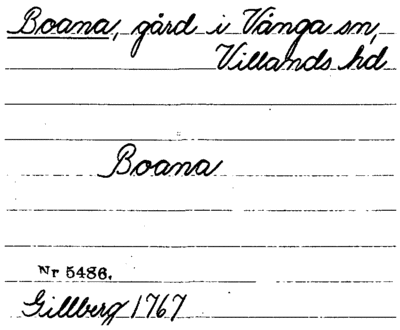 Boana, gård i Vånga sn,
Villands hd
Boana
Nr 5486.
Gillberg 1767